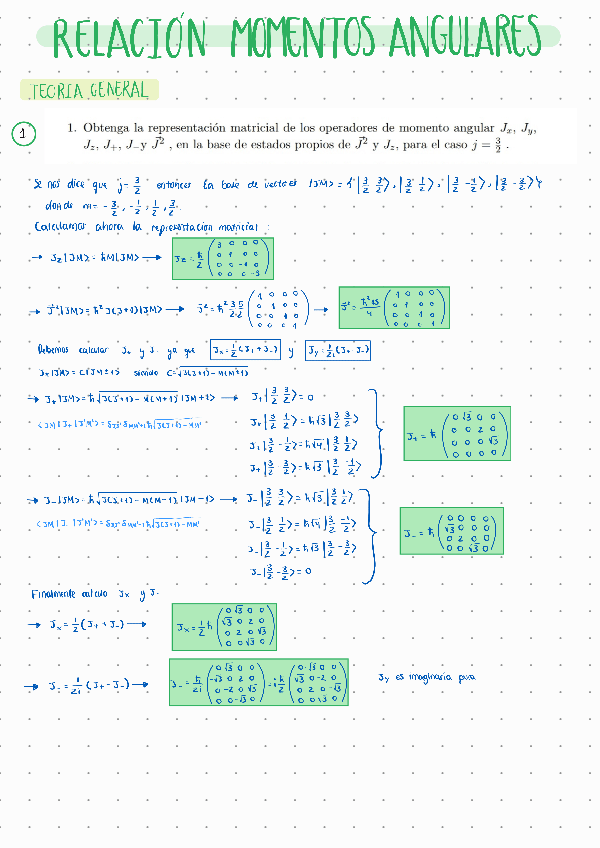 RELACIÓN MOMENTOS ANGULARES
TEORIA GENERAL
1
1. Obtenga la representación matricial de los operadores de momento angular Jx, Jy,
Jz, J+, J−y J⃗² , en la base de estados propios de J⃗² y Jz, para el caso j = 3/2 .
Se nos dice que j = 3/2 entonces la base de vectores |JM> = {|3/2 3/2>, |3/2 1/2>, |3/2 -1/2>, |3/2 -3/2>}
donde m = -3/2, -1/2, 1/2, 3/2.
Calculamos ahora la representación matricial:
→ Jz|JM> = ħM|JM> → Jz = ħ/2 (3 0 0 0 / 0 1 0 0 / 0 0 -1 0 / 0 0 0 -3)
→ J⃗²|JM> = ħ² J(J+1)|JM> → J⃗² = ħ² 3·5/2·2 (1 0 0 0 / 0 1 0 0 / 0 0 1 0 / 0 0 0 1) → J⃗² = ħ²15/4 (1 0 0 0 / 0 1 0 0 / 0 0 1 0 / 0 0 0 1)
Debemos calcular J+ y J- ya que Jx = 1/2 (J+ + J-) y Jy = 1/2i (J+ - J-)
J±|JM> = C|JM±1> siendo C = √J(J+1) - M(M±1)
→ J+|JM> = ħ√J(J+1) - M(M+1) |JM+1> → J+|3/2 3/2> = 0
J+|3/2 1/2> = ħ√3 |3/2 3/2>
<JM|J+|J'M'> = δJJ' δMM'+1 ħ√J(J+1) - MM'
J+|3/2 -1/2> = ħ√4 |3/2 1/2>
J+|3/2 -3/2> = ħ√3 |3/2 -1/2>
J+ = ħ (0 √3 0 0 / 0 0 2 0 / 0 0 0 √3 / 0 0 0 0)
→ J-|JM> = ħ√J(J+1) - M(M-1) |JM-1> → J-|3/2 3/2> = ħ√3 |3/2 1/2>
<JM|J-|J'M'> = δJJ' δMM'-1 ħ√J(J+1) - MM'
J-|3/2 1/2> = ħ√4 |3/2 -1/2>
J-|3/2 -1/2> = ħ√3 |3/2 -3/2>
J-|3/2 -3/2> = 0
J- = ħ (0 0 0 0 / √3 0 0 0 / 0 2 0 0 / 0 0 √3 0)
Finalmente calculo Jx y J-
→ Jx = 1/2 (J+ + J-) → Jx = 1/2 ħ (0 √3 0 0 / √3 0 2 0 / 0 2 0 √3 / 0 0 √3 0)
→ J- = 1/2i (J+ - J-) → J- = ħ/2i (0 √3 0 0 / -√3 0 2 0 / 0 -2 0 √3 / 0 0 -√3 0) = i ħ/2 (0 -√3 0 0 / √3 0 -2 0 / 0 2 0 -√3 / 0 0 √3 0) Jy es imaginaria pura